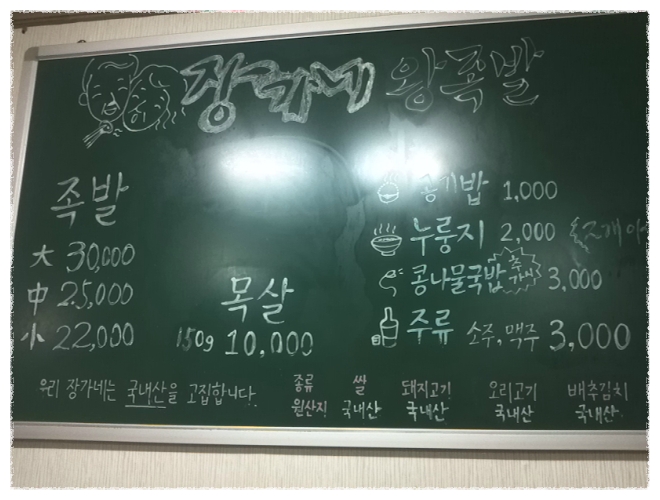 장가네 왕족발
족발
大 30,000
中 25,000
小 22,000
목살
150g 10,000
공기밥 1,000
누룽지 2,000
콩나물국밥 추가시 3,000
주류 소주, 맥주 3,000
우리 장가네는 국내산을 고집합니다.
종류 쌀 돼지고기 오리고기 배추김치
원산지 국내산 국내산 국내산 국내산